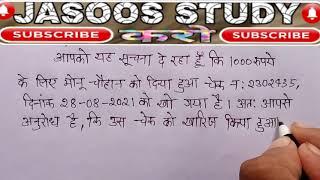 JASOOS STUDY
SUBSCRIBE करा SUBSCRIBE
आपको यह सूचना दे रहा हूँ कि 1000 रुपये
के लिए मोनू चौहान को दिया हुआ चेक न: 2302435,
दिनांक 28-08-2021 को खो गया है। अतः आपसे
अनुरोध है, कि उस चेक को खारिज किया हुआ